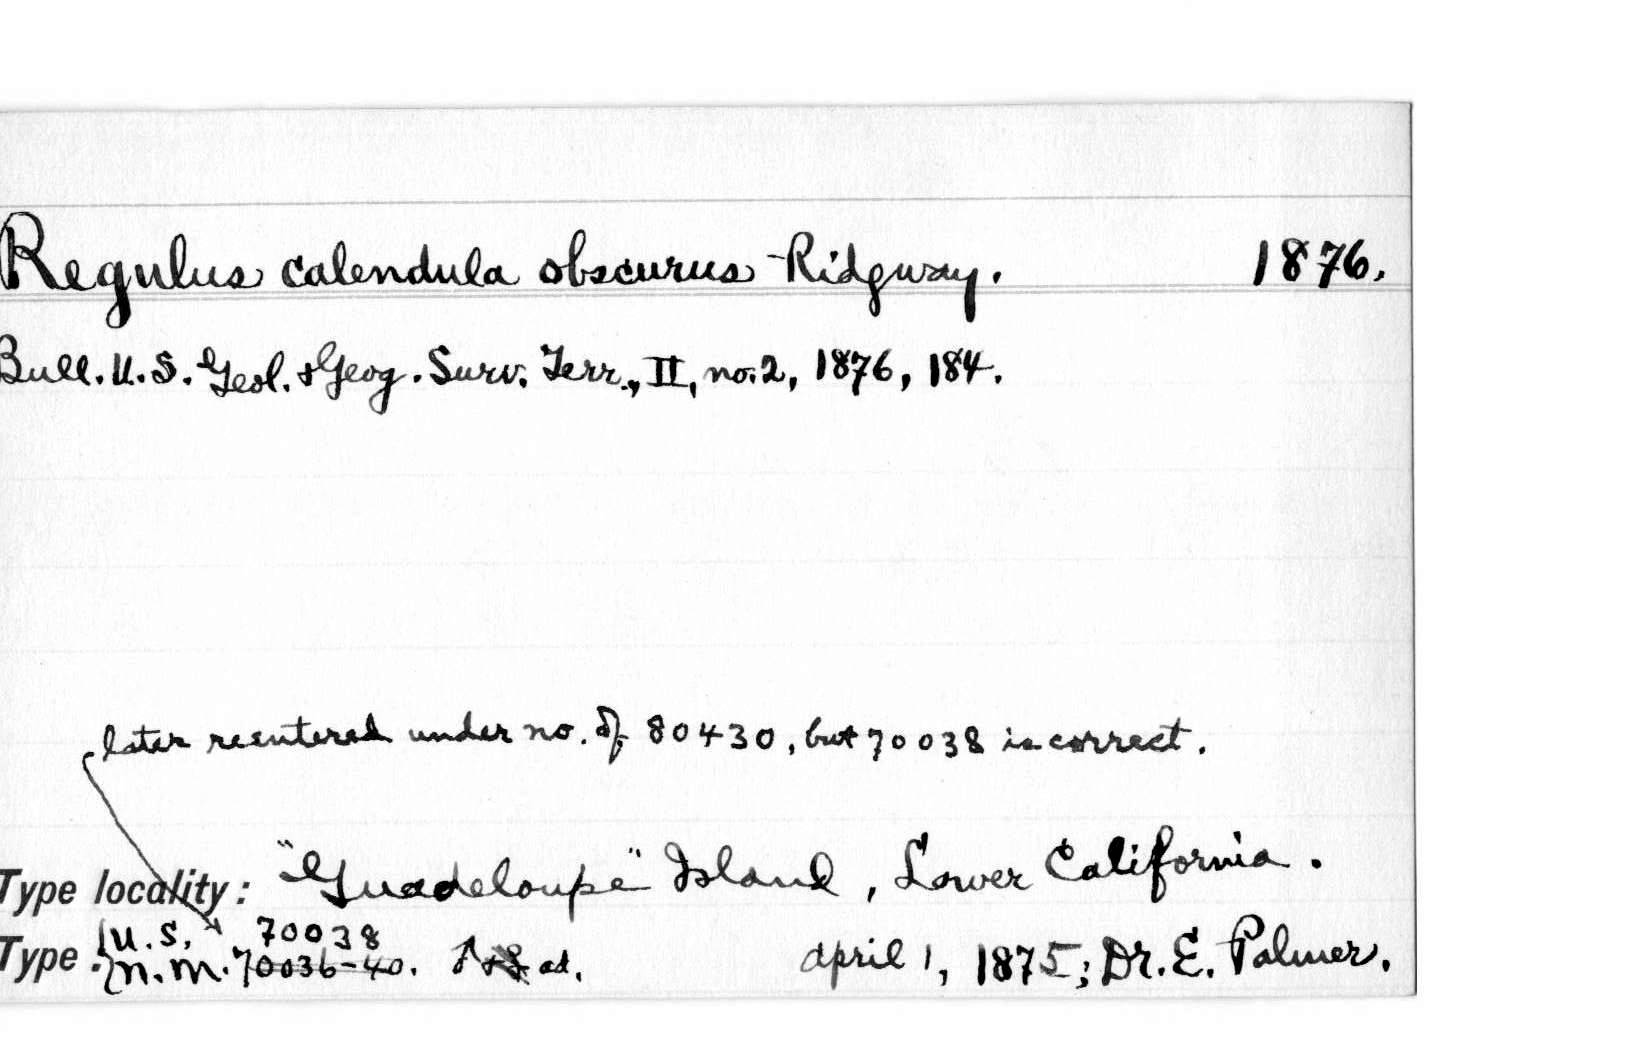 Regulus calendula obscurus Ridgway. 1876.
Bull. U.S. Geol. & Geog. Surv. Terr., II, no. 2, 1876, 184.
later reentered under no. of 80430, but 70038 is correct.
Type locality: "Guadeloupe" Island, Lower California.
U.S. 70038
Type: N.M. 70036-40. ♂ & ♀ ad. April 1, 1875; Dr. E. Palmer.